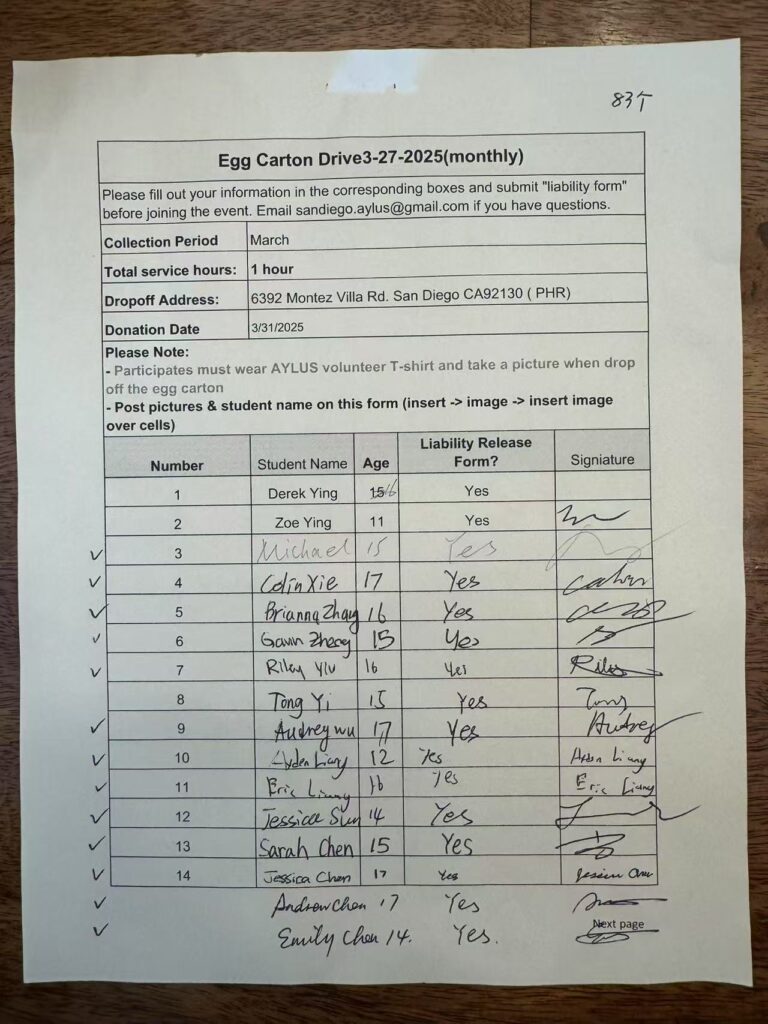 83个
Egg Carton Drive3-27-2025(monthly)
Please fill out your information in the corresponding boxes and submit "liability form"
before joining the event. Email sandiego.aylus@gmail.com if you have questions.
Collection Period March
Total service hours: 1 hour
Dropoff Address: 6392 Montez Villa Rd. San Diego CA92130 ( PHR)
Donation Date 3/31/2025
Please Note:
- Participates must wear AYLUS volunteer T-shirt and take a picture when drop
off the egg carton
- Post pictures & student name on this form (insert -> image -> insert image
over cells)
Number Student Name Age Liability Release Form? Signiature
1 Derek Ying 15 16 Yes
2 Zoe Ying 11 Yes
✓ 3 Michael 15 Yes
✓ 4 Colin Xie 17 Yes
✓ 5 Brianna Zhang 16 Yes
✓ 6 Gavin Zheng 15 Yes
✓ 7 Riley Yiu 16 Yes Riley
8 Tong Yi 15 Yes Tong
✓ 9 Audrey Wu 17 Yes Audrey
✓ 10 Liang 12 Yes Liang
✓ 11 Eric Liang 16 Yes Eric Liang
✓ 12 Jessica Sun 14 Yes
✓ 13 Sarah Chen 15 Yes
✓ 14 Jessica Chen 17 Yes Jessica Chen
✓ Andrew Chen 17 Yes
✓ Emily Chen 14. Yes.
Next page